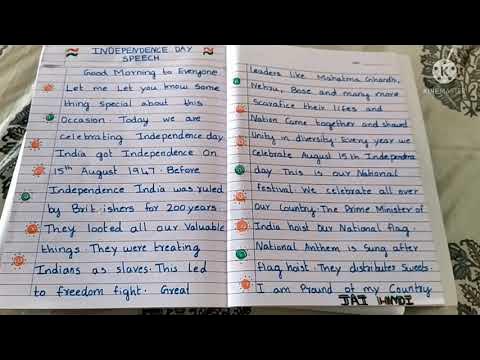 INDEPENDENCE DAY
SPEECH
Good Morning to Everyone
Let me Let you know some
thing Special about this
Occasion. Today we are
celebrating Independence day.
India got Independence On
15th August 1947. Before
Independence India was ruled
by Brit.ishers for 200 years.
They looted all our Valuable
things. They were treating
Indians as slaves. This Led
to freedom fight. Great
Leaders like Mahatma Ghandhi,
Nehru, Bose and many more
Scarafice their lifes and
Nation Come together and shawd
Unity in diversity. Every year we
Celebrate August 15th Independence
day This is our National
festival. We celebrate all over
Our Country. The Prime Minister of
India hoist Our National flag.
National Anthem is Sung after
flag hoist. They distributes Sweets.
I am Pround of my Country
JAI HINDI
KINEMASTER